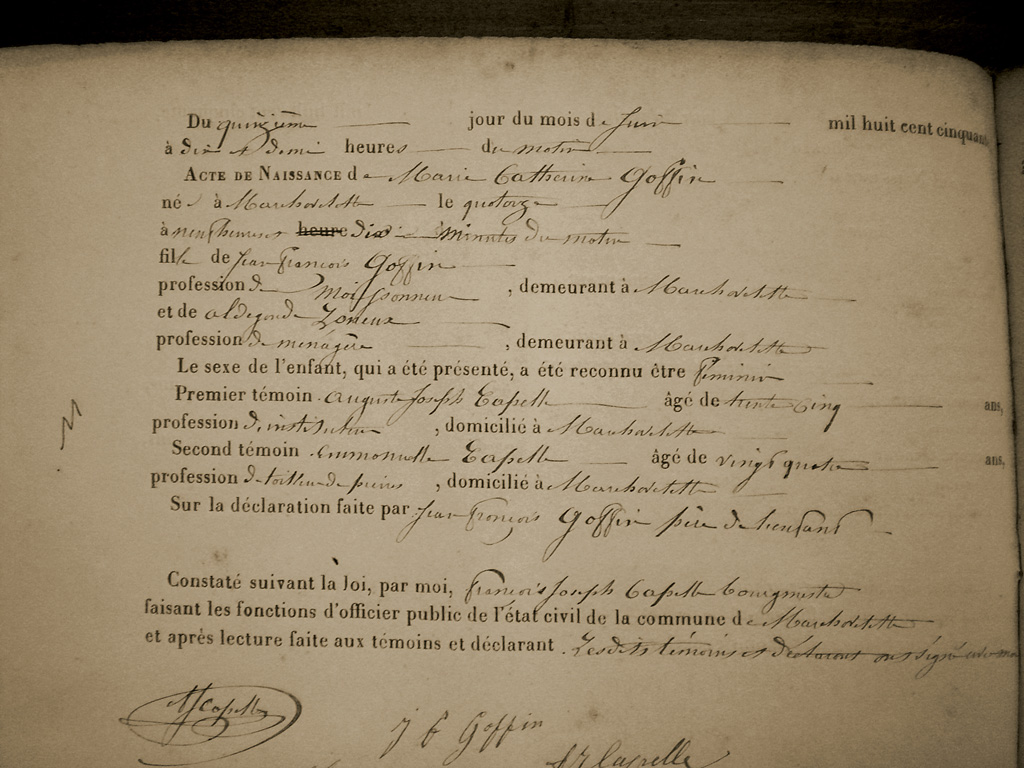 Du quinzième jour du mois de Juin mil huit cent cinquant
à dix et demi heures du matin
ACTE DE NAISSANCE de Marie Catherine Goffin
née à Marchovelette le quatorze
à neuf heures heure dix minutes du matin
fille de Jean François Goffin
profession de Moissonneur , demeurant à Marchovelette
et de aldegonde
profession de ménagère , demeurant à Marchovelette
Le sexe de l'enfant, qui a été présenté, a été reconnu être féminin
Premier témoin Auguste Joseph Capelle âgé de trente cinq ans,
profession d'instituteur , domicilié à Marchovelette
Second témoin Emmanuelle Capelle âgé de vingt quatre ans,
profession de tailleur de pierres , domicilié à Marchovelette
Sur la déclaration faite par Jean François Goffin père de l'enfant
Constaté suivant la loi, par moi, François Joseph Capelle bourgmestre
faisant les fonctions d'officier public de l'état civil de la commune de Marchovelette
et après lecture faite aux témoins et déclarant . Lesdits témoins et déclarant ont signé avec
Capelle
J F Goffin
Capelle